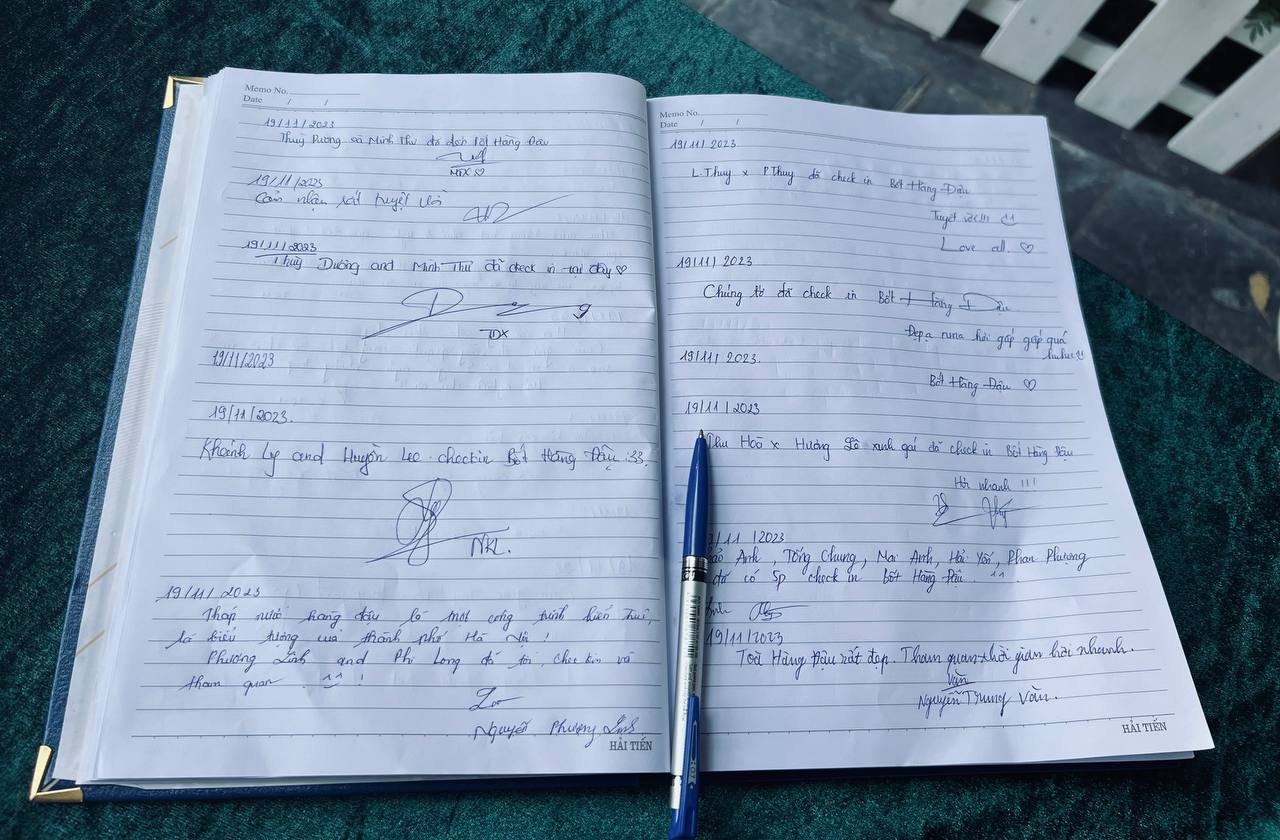 Memo No.
Date / /
19/11/2023
Thuỳ Dương và Minh Thư đã đến Bốt Hàng Đậu
MTX ♡
19/11/2023
Cảm nhận rất tuyệt vời
19/11/2023
Thuỳ Dương and Minh Thư đã check in tại đây ♡
TDX
19/11/2023
19/11/2023.
Khánh Ly and Huyền Leo checkin Bốt Hàng Đậu :33.
NKL.
19/11/2023
Tháp nước hàng đậu là một công trình kiến trúc,
là biểu tượng của thành phố Hà Nội !
Phương Linh and Phi Long đã tới, check in và
tham quan. ^^ !
Nguyễn Phương Linh
HẢI TIẾN
Memo No.
Date / /
19/11/2023
L.Thuy x P.Thuy đã check in Bốt Hàng Đậu
Tuyệt vời!!! ^^
Love all. ♡
19/11/2023
Chúng tớ đã check in Bốt Hàng Đậu
Đẹp mà hơi gấp gấp quá
huhu
19/11/2023.
Bốt Hàng Đậu ♡
19/11/2023
Thu Hoà x Hương xinh gái đã check in Bốt Hàng Đậu
Hơi nhanh !!!
/11/2023
Anh, Tống Chung, Mai Anh, Hải Yến, Phan Phượng
đã có 5p check in Bốt Hàng Đậu. ^^
19/11/2023
Toà Hàng Đậu rất đẹp. Tham quan thời gian hơi nhanh.
Văn
Nguyễn Trung Văn.
HẢI TIẾN